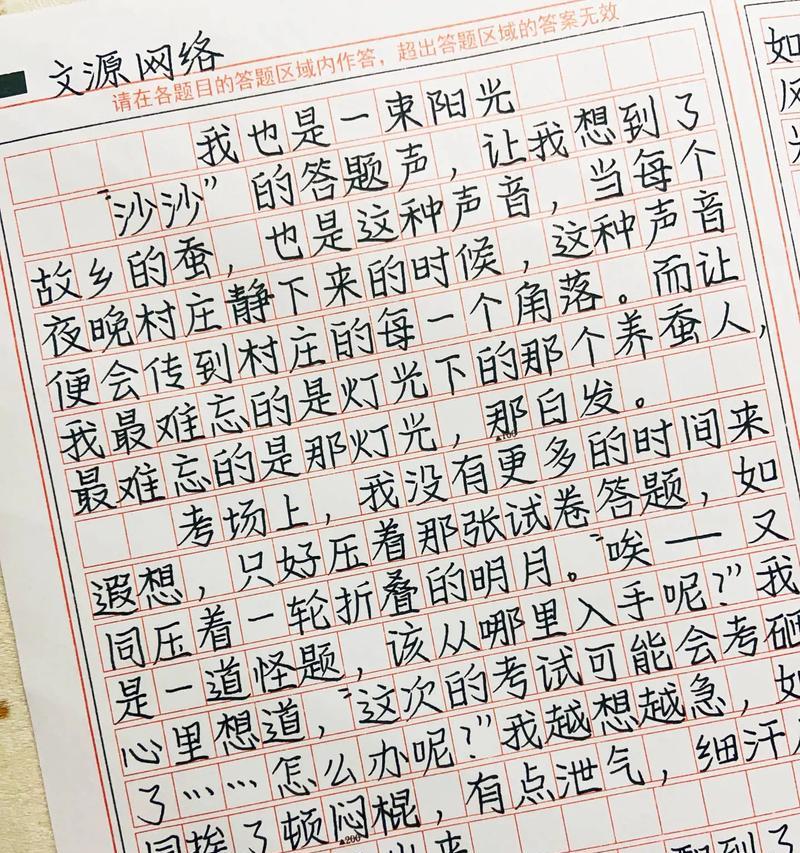 文源网络
请在各题目的答题区域内作答，超出答题区域的答案无效
我也是一束阳光
“沙沙”的答题声，让我想到了
故乡的蚕，也是这种声音，当每个
夜晚村庄静下来的时候，这种声音
便会传到村庄的每一个角落。而让
我最难忘的是灯光下的那个养蚕人，
最难忘的是那灯光，那白发。
▲100
考场上，我没有更多的时间来
遐想，只好压着那张试卷答题，如
同压着一轮折叠的明月。“唉——又
是一道怪题，该从哪里入手呢？”我
心里想道，“这次的考试可能会考砸
了……怎么办呢？”我越想越急，如
同挨了顿闷棍，有点泄气，细汗
▲200
出来
到了
如
风